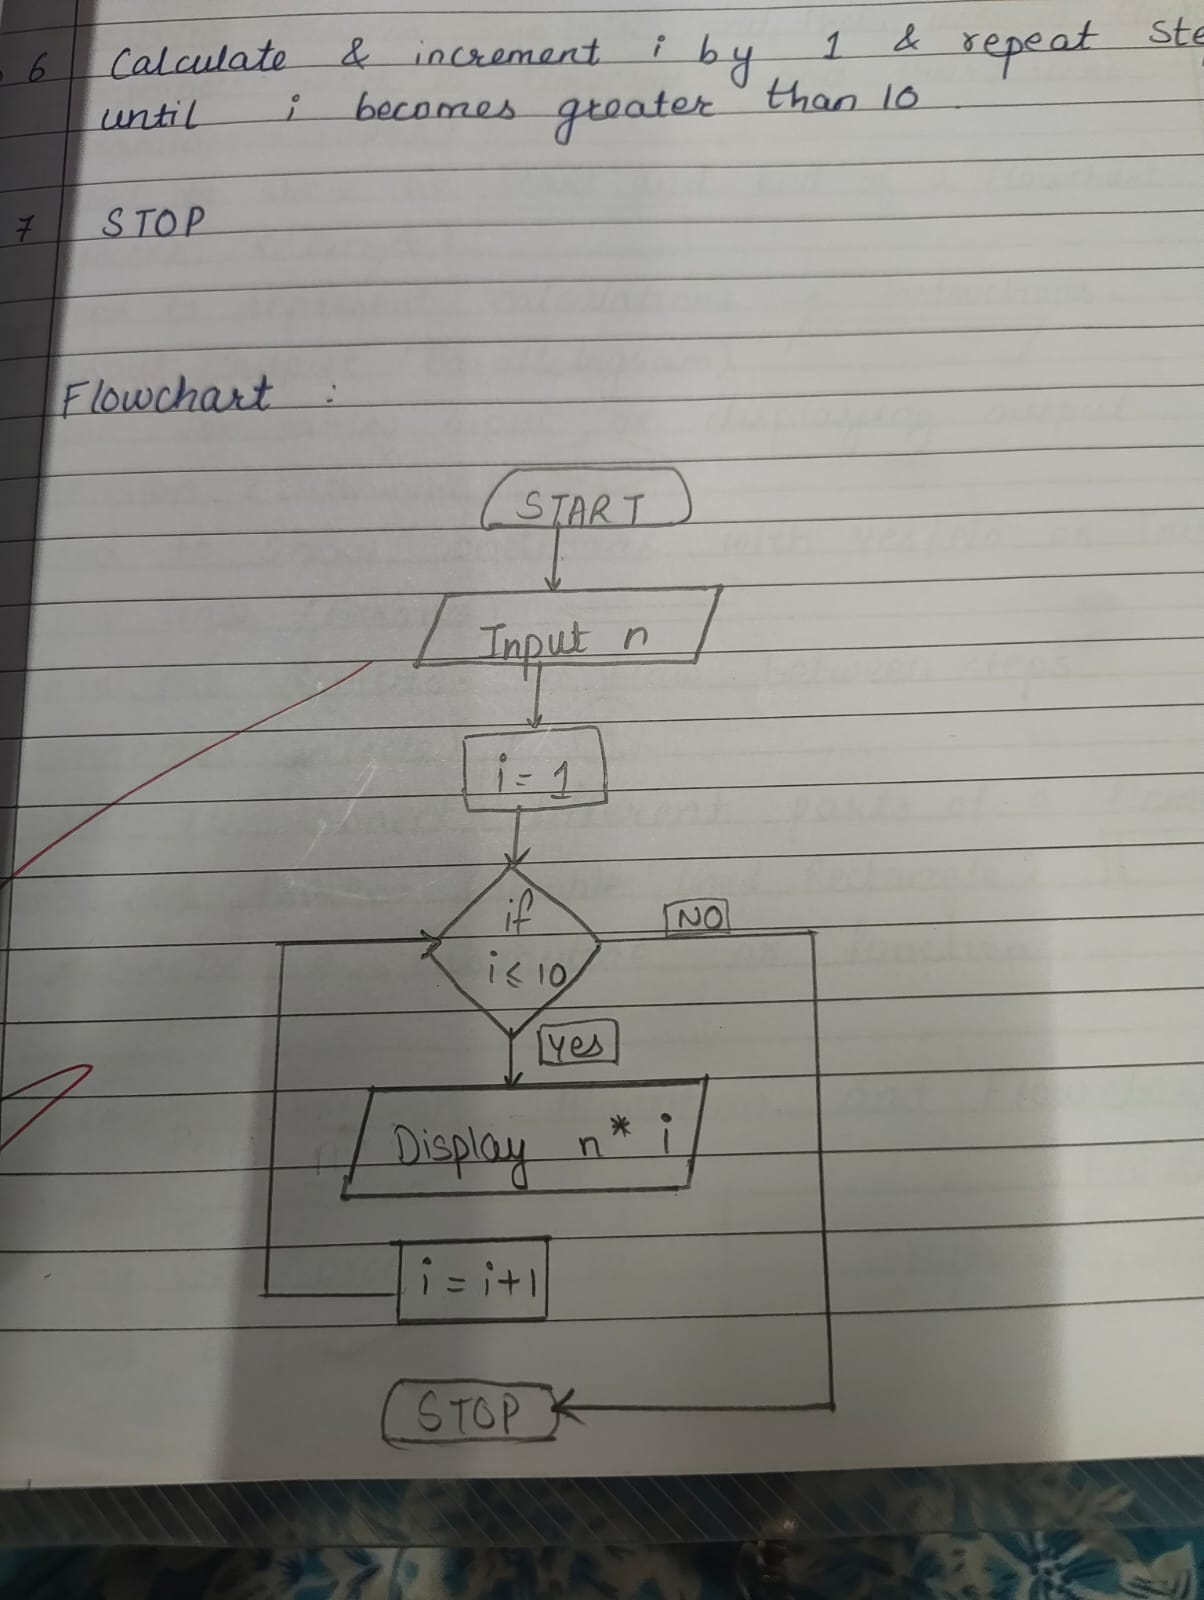 6 Calculate & increment i by 1 & repeat Ste
until i becomes greater than 10.
7 STOP
Flowchart :
START
Input n
i = 1
if
i ≤ 10
NO
Yes
Display n* i
i = i+1
STOP